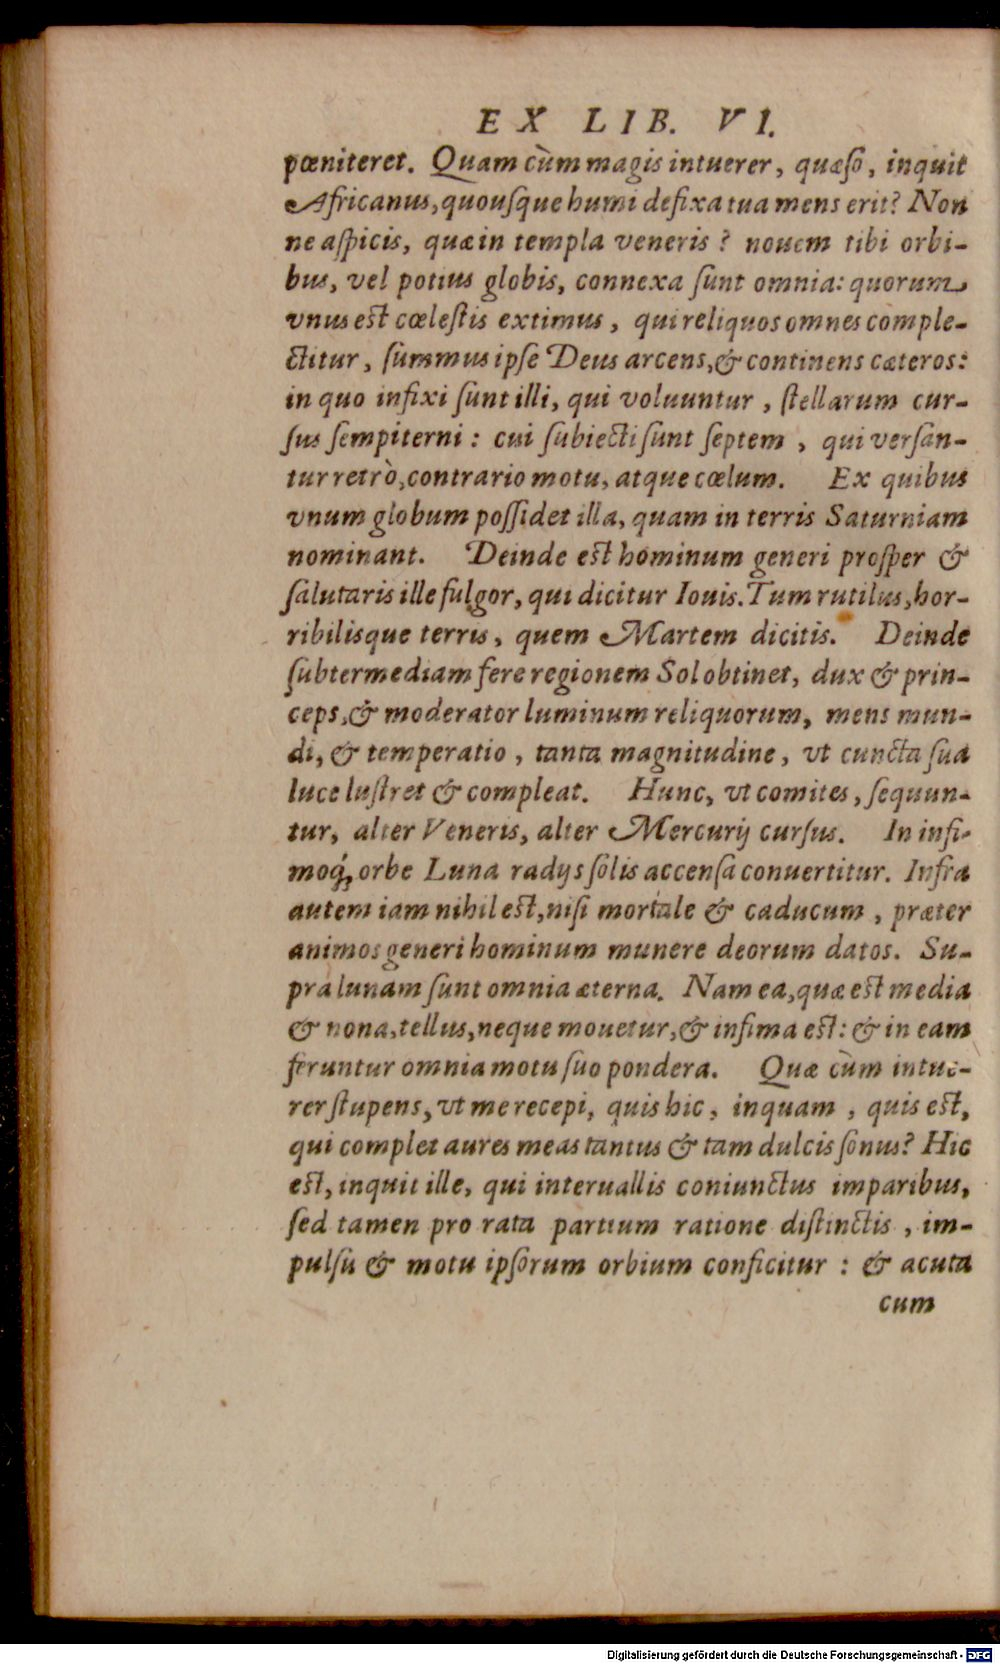 EX LIB. VI.
pœniteret. Quam cùm magis intuerer, quæso, inquit
Africanus, quousque humi defixa tua mens erit? Non
ne aspicis, quæ in templa veneris? nouem tibi orbi-
bus, vel potius globis, connexa sunt omnia: quorum
vnus est cœlestis extimus, qui reliquos omnes comple-
ctitur, summus ipse Deus arcens, & continens cæteros:
in quo infixi sunt illi, qui voluuntur, stellarum cur-
sus sempiterni: cui subiecti sunt septem, qui versan-
tur retrò, contrario motu, atque cœlum. Ex quibus
vnum globum possidet illa, quam in terris Saturniam
nominant. Deinde est hominum generi prosper &
salutaris ille fulgor, qui dicitur Iouis. Tum rutilus, hor-
ribilisque terris, quem Martem dicitis. Deinde
subter mediam fere regionem Sol obtinet, dux & prin-
ceps, & moderator luminum reliquorum, mens mun-
di, & temperatio, tanta magnitudine, vt cuncta sua
luce lustret & compleat. Hunc, vt comites, sequun-
tur, alter Veneris, alter Mercurij cursus. In infi-
moq́; orbe Luna radijs solis accensa conuertitur. Infra
autem iam nihil est, nisi mortale & caducum, præter
animos generi hominum munere deorum datos. Su-
pra lunam sunt omnia æterna. Nam ea, quæ est media
& nona, tellus, neque mouetur, & infima est: & in eam
feruntur omnia motu suo pondera. Quæ cùm intue-
rer stupens, vt me recepi, quis hic, inquam, quis est,
qui complet aures meas tantus & tam dulcis sonus? Hic
est, inquit ille, qui interuallis coniunctus imparibus,
sed tamen pro rata partium ratione distinctis, im-
pulsu & motu ipsorum orbium conficitur: & acuta
cum
Digitalisierung gefördert durch die Deutsche Forschungsgemeinschaft - DFG